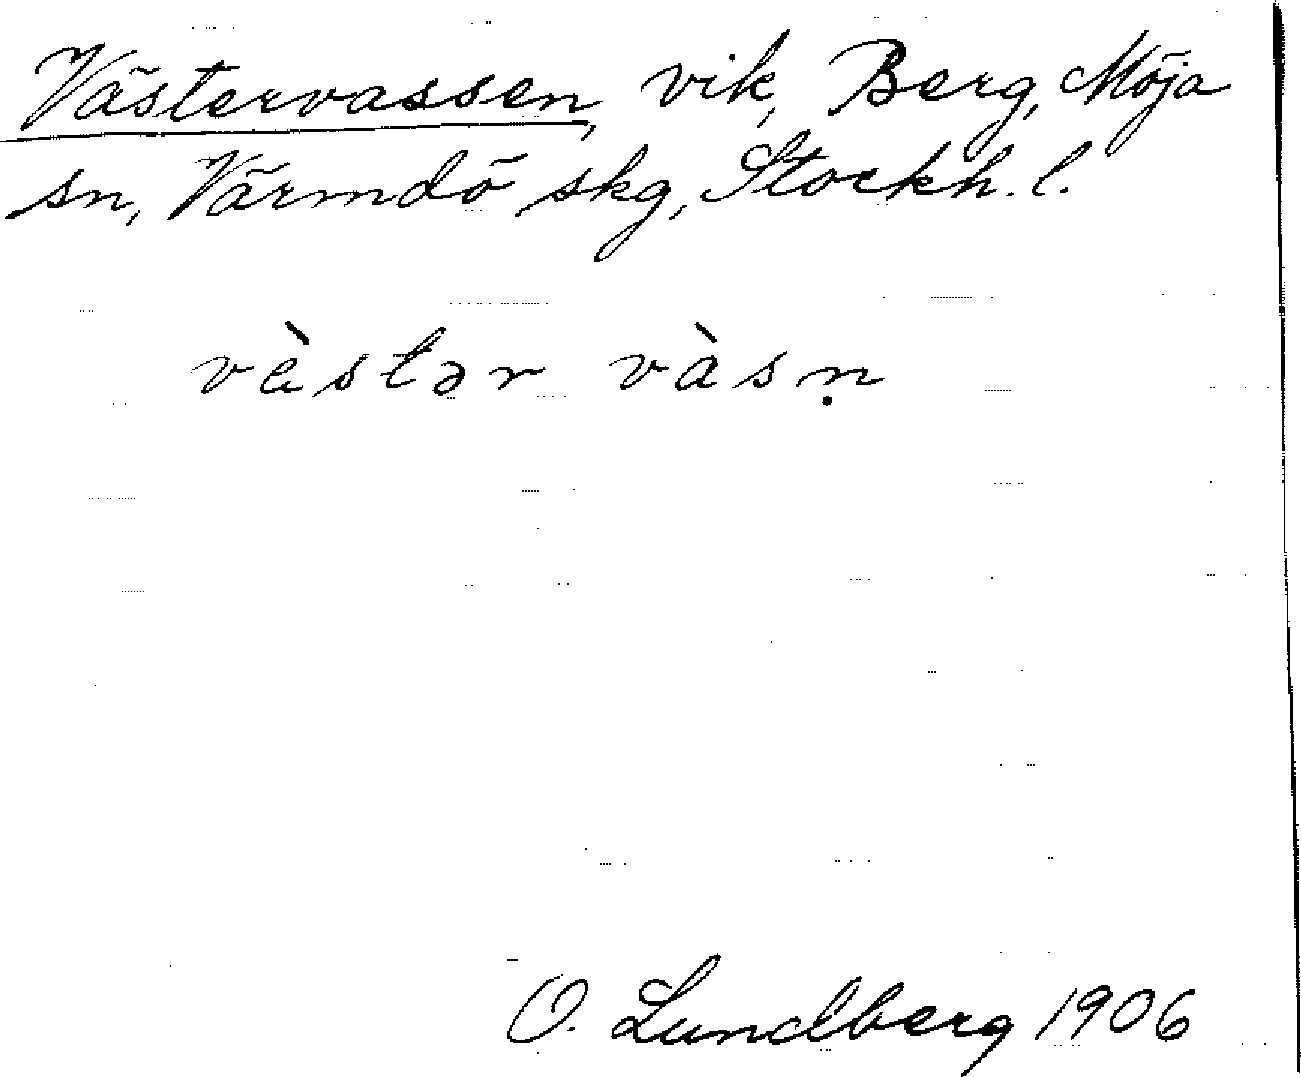 Västervassen, vik, Berg, Möja
sn, Värmdö skg, Stockh. l.
vèstər vàsṇ
O. Lundberg 1906